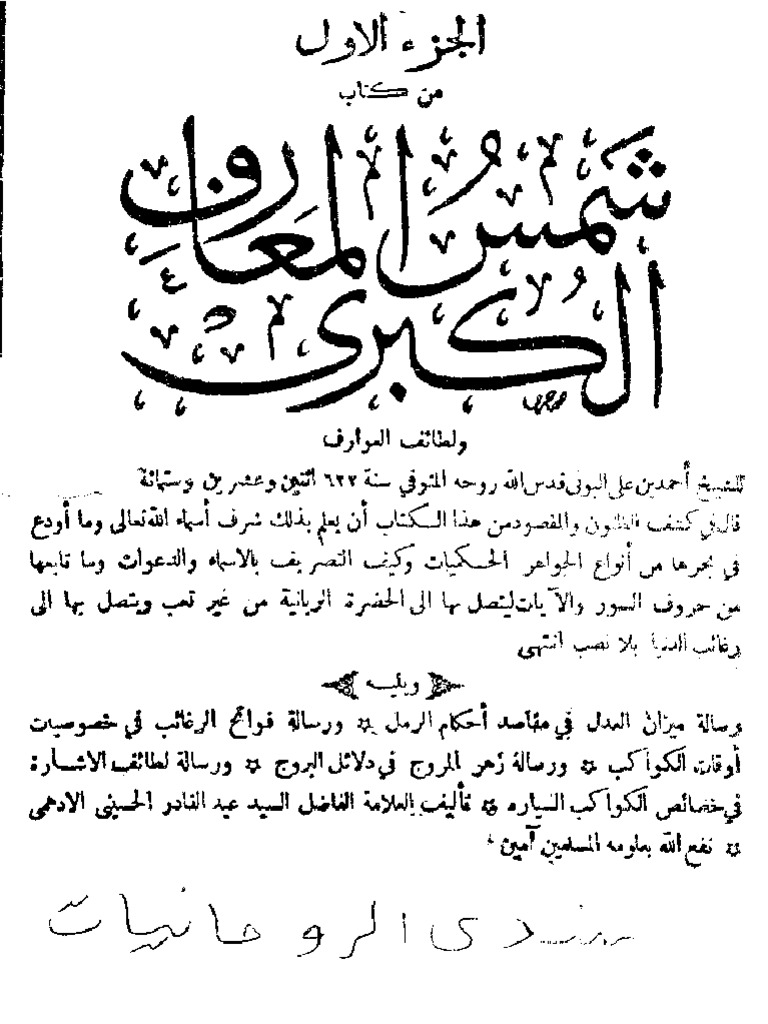 الجزء الاول
من كتاب
شمس المعارف
الكبرى
ولطائف العوارف
للشيخ أحمد بن على البونى قدس الله روحه المتوفي سنة ٦٢٢ اثنتين وعشرين وستمائة
قال في كشف الظنون والمقصود من هذا الكتاب أن يعلم بذلك شرف أسماء الله تعالى وما أودع
في بحرها من أنواع الجواهر الحكميات وكيف التصريف بالاسماء والدعوات وما تابعها
من حروف السور والآيات ليتصل بها الى الحضرة الربانية من غير تعب ويتصل بها الى
رغائب الدنيا بلا نصب انتهى
ويليه
رسالة ميزان العدل في مقاصد أحكام الرمل ☼ ورسالة فواتح الرغائب في خصوصيات
أوقات الكواكب ☼ ورسالة زهر المروج في دلائل البروج ☼ ورسالة لطائف الاشارة
في خصائص الكواكب السياره ☼ تأليف العلامة الفاضل السيد عبد القادر الحسينى الادهمى
☼ نفع الله بعلومه المسلمين آمين
منتدى الروحانيات